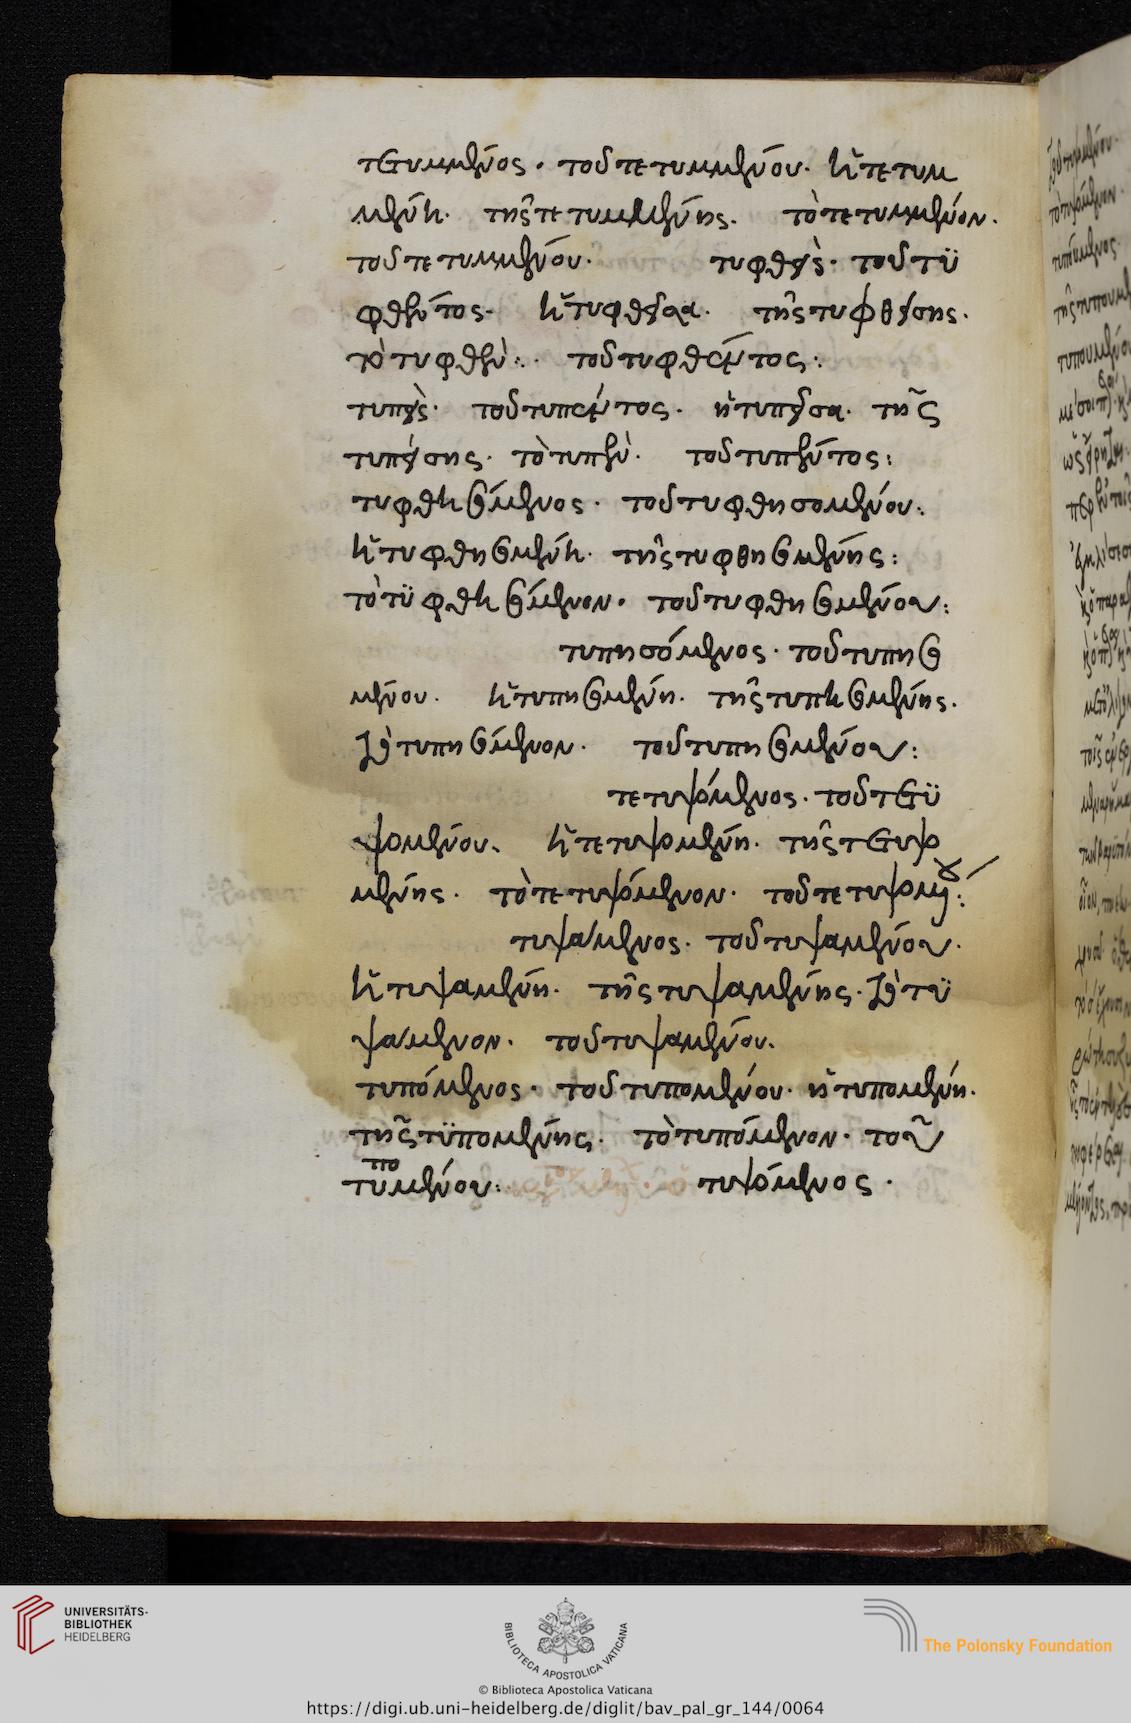 τετυμμένος· τοῦ τετυμμένου· ἡ τετυμ
μένη· τῆς τετυμμένης· τὸ τετυμμένον·
τοῦ τετυμμένου· τυφθεὶς· τοῦ τυ
φθέντος· ἡ τυφθεῖσα· τῆς τυφθείσης·
τὸ τυφθὲν: τοῦ τυφθέντος:
τυπεὶς· τοῦ τυπέντος· ἡ τυπεῖσα· τῆς
τυπείσης· τὸ τυπὲν· τοῦ τυπέντος:
τυφθησόμενος· τοῦ τυφθησομένου:
ἡ τυφθησομένη· τῆς τυφθησομένης:
τὸ τυφθησόμενον· τοῦ τυφθησομένου:
τυπησόμενος· τοῦ τυπησο
μένου· ἡ τυπησομένη· τῆς τυπησομένης·
τὸ τυπησόμενον· τοῦ τυπησομένου:
τετυψόμενος· τοῦ τετυ
ψομένου· ἡ τετυψομένη· τῆς τετυψο
μένης· τὸ τετυψόμενον· τοῦ τετυψομένου:
τυψάμενος· τοῦ τυψαμένου·
ἡ τυψαμένη· τῆς τυψαμένης· τὸ τυ
ψάμενον· τοῦ τυψαμένου·
τυπόμενος· τοῦ τυπομένου· ἡ τυπομένη·
τῆς τυπομένης· τὸ τυπόμενον· τοῦ
τυπομένου: τυψόμενος·
UNIVERSITÄTS-
BIBLIOTHEK
HEIDELBERG
BIBLIOTECA APOSTOLICA VATICANA
The Polonsky Foundation
© Biblioteca Apostolica Vaticana
https://digi.ub.uni-heidelberg.de/diglit/bav_pal_gr_144/0064